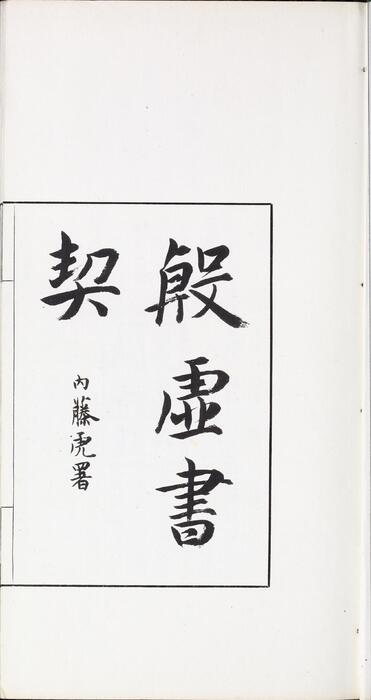 殷虛書
契
内藤虎署